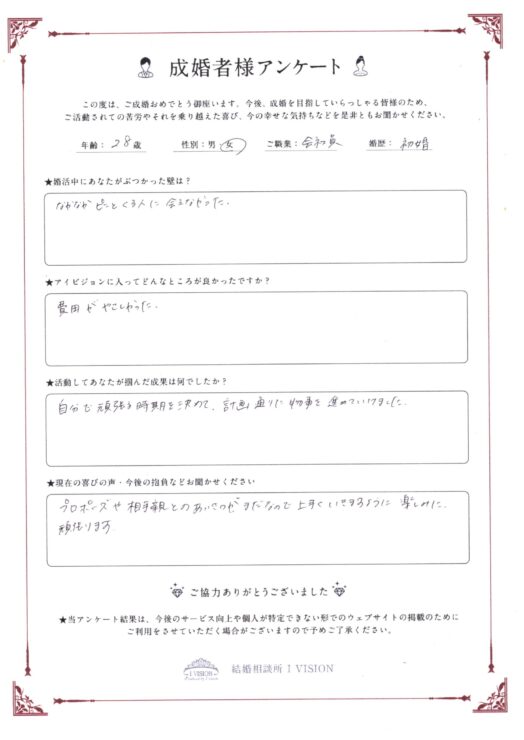 成婚者様アンケート
この度は、ご成婚おめでとう御座います。今後、成婚を目指していらっしゃる皆様のため、
ご活動されての苦労やそれを乗り越えた喜び、今の幸せな気持ちなどを是非ともお聞かせください。
年齢：28歳 性別：男・女 ご職業：会社員 婚歴：初婚
★婚活中にあなたがぶつかった壁は？
なかなかピンとくる人に会えなかった。
★アイビジョンに入ってどんなところが良かったですか？
費用がやさしかった。
★活動してあなたが掴んだ成果は何でしたか？
自分で頑張る時期を決めて、計画通りに物事を進めていけました。
★現在の喜びの声・今後の抱負などお聞かせください
プロポーズや相手親とのあいさつがまだなので上手くいきますように楽しみに、
頑張ります。
ご協力ありがとうございました
★当アンケート結果は、今後のサービス向上や個人が特定できない形でのウェブサイトの掲載のために
ご利用をさせていただく場合がございますので予めご了承ください。
I VISION
結婚相談所 I VISION